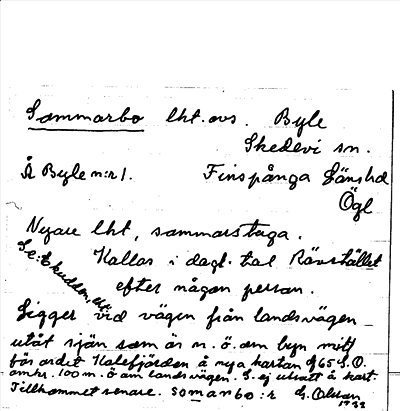 Sommarbo lht. avs. Byle
Skedevi sn.
Å Byle n:r 1. Finspånga länshd
Ögl
Nyare lht, sommarstuga.
Se: Ekudden,
Kallas i dagl. tal Rävstället
efter någon person.
Ligger vid vägen från landsvägen
utåt sjön som är n. ö. om byn mitt
för ordet Kalefjärden å nya kartan bl 65 S.O.
omkr. 100 m. ö om landsvägen. S. ej utsatt å kart.
Tillkommet senare. somambo:r G. Olsson